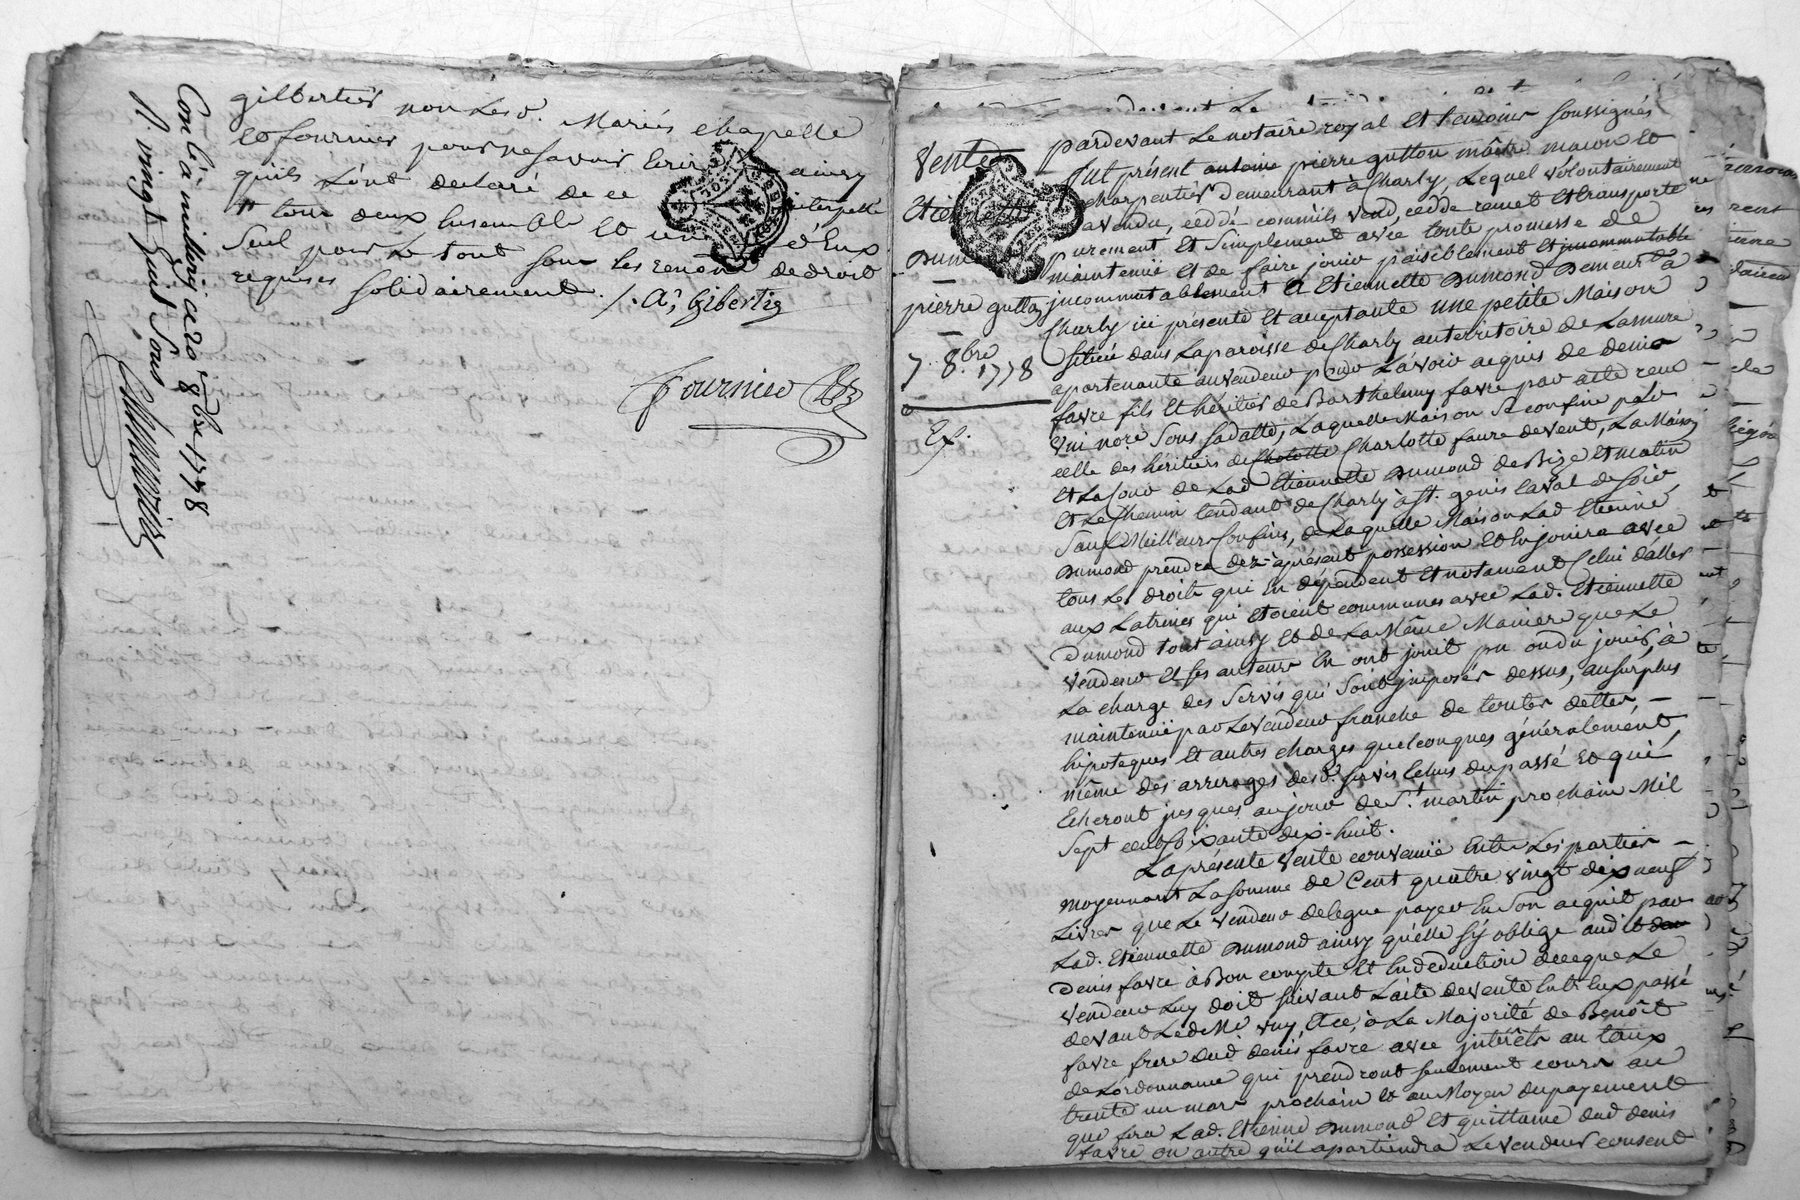 gilbertier non Lesd. Mariés chapelle
et fournier pour ne savoir Ecrire ainsy
quils L'ont declaré de ce interpellés
et tour deux Ensemble et un d'Eux
Seul pour Le tout sous les renon. de droit
requises solidairement /. A, Gibertier
Fournier
Con lé à millery ce 20 8bre 1778
R. vingt huit Sous
Vente
Etiennette
Dumond
pierre gutton
7. 8.bre 1778
Ex.
pardevant Le notaire royal Et temoins soussignés
fut présent antoine pierre gutton maitre macon et
charpentier demeurant à Charly, Lequel volontairement
a vendu, cédé commils vend, cedde remet Et transporte
purement Et Simplement avec toute promesse de
maintenüe et de faire jouir paisiblement Et incommutable
jncommutablement à Etiennette Dumond Demeurt à
Charly ici présente Et acceptante une petite Maison
Située dans La paroisse de Charly au territoire de Lamure
apartenante au vendeur pour L'avoir acquis de denis
favre fils Et héritier de Barthelemy favre par acte recu
Vui noré Sous sa datte, Laquelle Maison Se confine par
celle des héritiers de Chalotte Charlotte faure de vent, La Maison
Et La Cour de Lad Etiennette Dumond de Bize Et matin
Et Le Chemin tendant de Charly à St. genis Laval de soir
Sauf Meilleurs Confins, de Laquelle Maison Lad Etienne
Dumond prendra dez-àprésent possession Et En jouira avec
tous Les droits qui En dépendent Et notament Celui d'aller
aux Latrines qui Etoient communes avec Lad. Etiennette
Dumond tout ainsy Et de La Même Maniere que Le
vendeur Et ses auteurs En ont jouit pu ou du jouir, à
La charge des Servis qui Sont jmposés dessus, au surplus
maintenüe par Le vendeur franche de toutes dettes
hipoteques Et autres charges quelconques généralement,
même des arrerages desd. servis Echus du passé Et qui
Echeront jusques au jour de St. martin prochain Mil
Sept cent soixante dix-huit.
La présente vente convenüe Entre Les parties
moyennant La somme de Cent quatre vingt dix neuf
Livres que Le vendeur delegue payer En Son acquit par
Lad. Etiennette Dumond ainsy qu'elle s'y oblige aud
Denis favre à Bon compte Et En deduction de ce que Le
vendeur Luy doit suivant L'acte de vente Entr Eux passé
devant Led Me Vuy, Et ce, à La Majorité de Benoît
favre frere dud denis favre avec jntérêts au taux
de L'ordonnance qui prendront seulement cours au
trente un mars prochain Et au Moyen du payement
que fera Lad. Etienne Dumond Et quittance dud denis
favre ou autre qu'il apartiendra Le vendeur consent